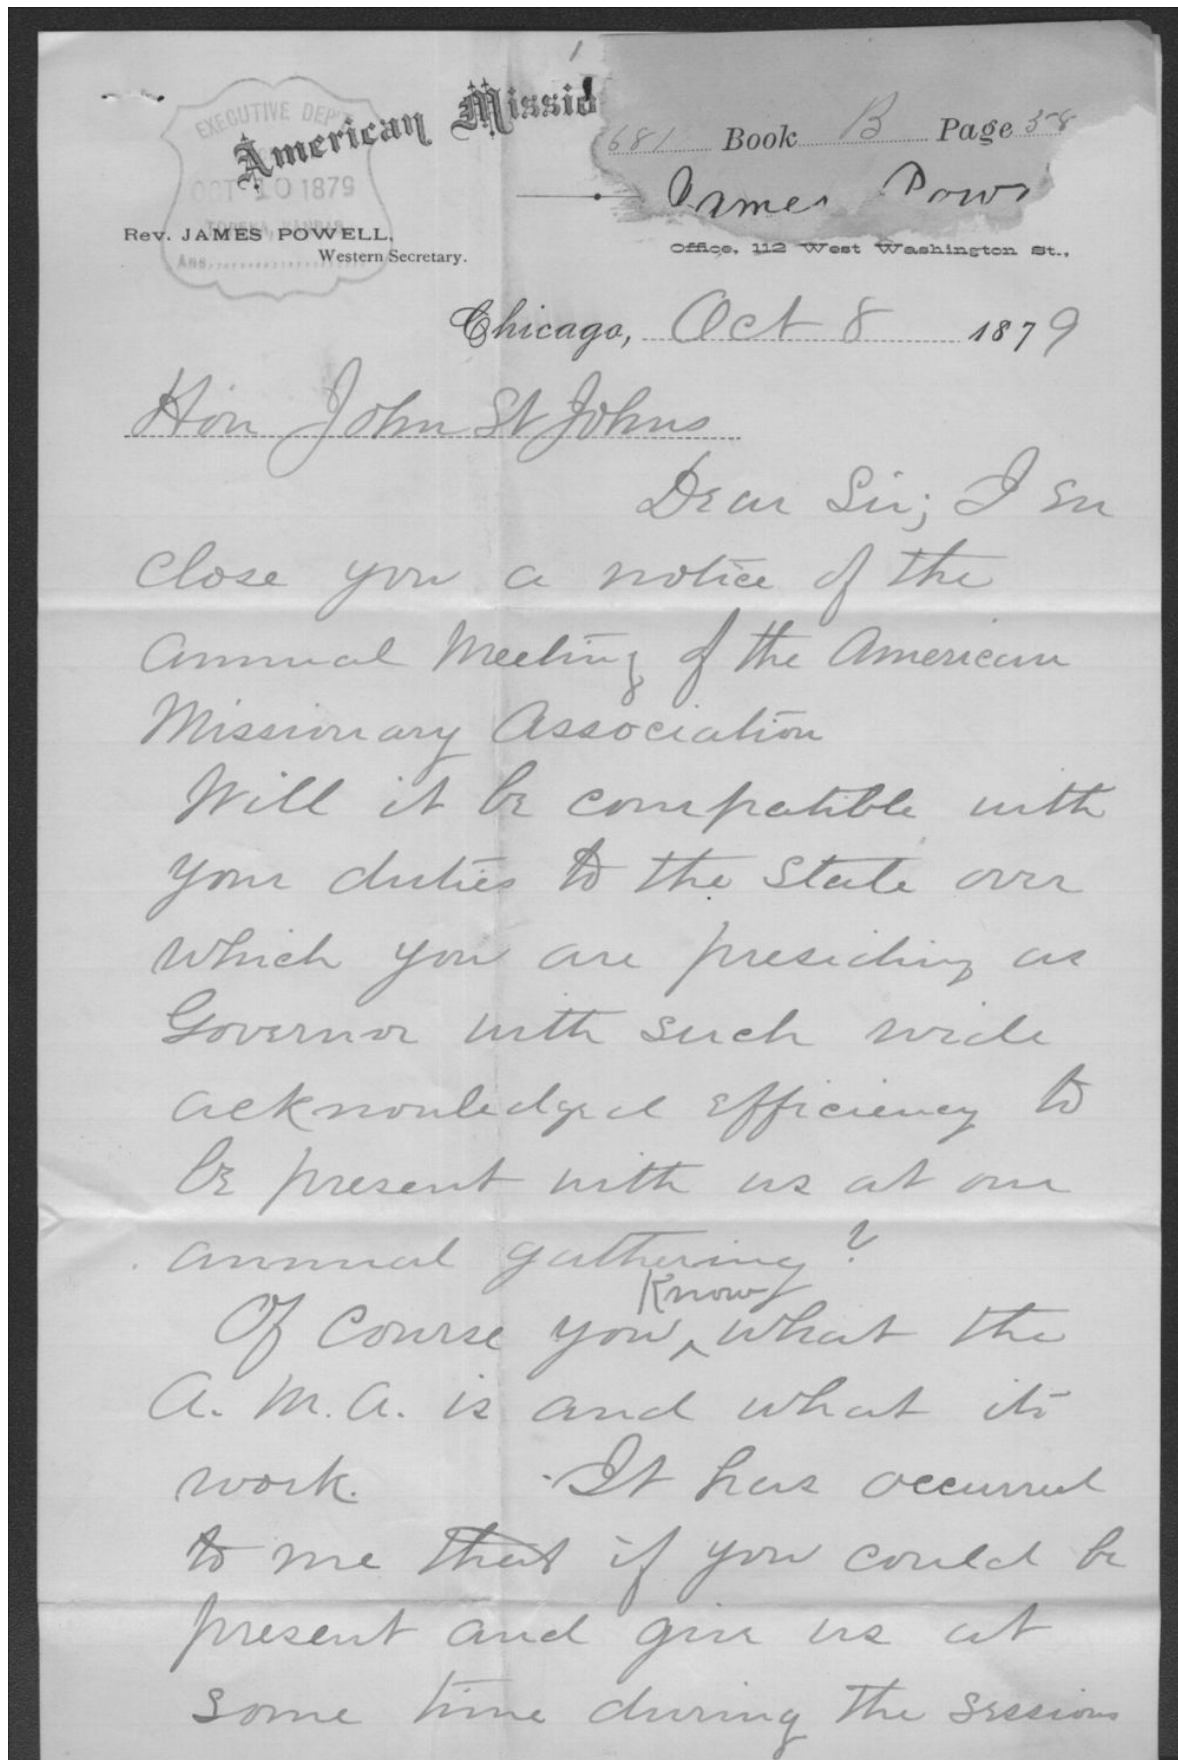 1
American Missio
EXECUTIVE DEP'T
OCT 10 1879
TOPEKA, KANSAS
Ans.
681 Book B Page 58
James Pow
Rev. JAMES POWELL,
Western Secretary.
Office, 112 West Washington St.,
Chicago, Oct 8 1879
Hon John St Johns
Dear Sir; I en
close you a notice of the
annual Meeting of the American
Missionary Association
Will it be compatible with
your duties to the State over
which you are presiding as
Governor with such wide
acknowledged efficiency to
be present with us at our
annual gathering?
Know
Of Course you ^ what the
A. M. A. is and what its
work. It has occurred
to me that if you could be
present and give us at
some time during the sessions